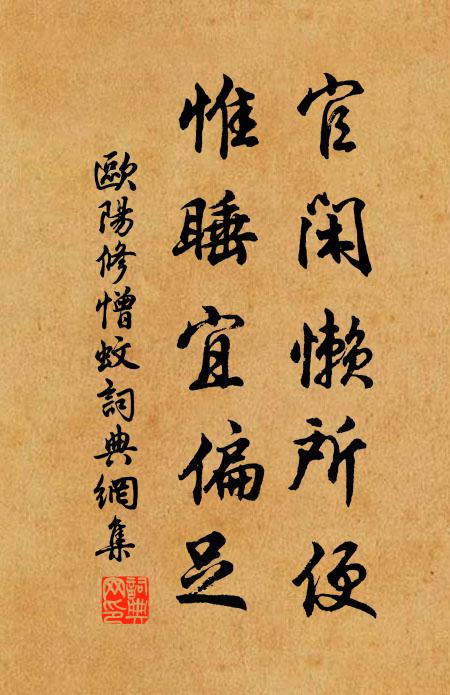 官閑懶所便
惟睡宜偏足
歐陽修憎蚊詞典網集
詞典網印